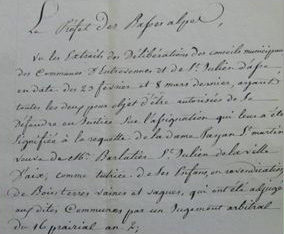 Le Préfet des Basses alpes,
Vu les Extraits des Délibérations des conseils municipaux
des Communes d'Entrevennes et de St. Julien d'asse
en date des 23 fevrier et 8 mars dernier, ayant
toutes les deux pour objet d'être autorisées de se
défendre en Justice sur l'assignation qui leur a été
signifiée à la requette de la dame Payan St. martin
veuve de Barlatier St. Julien de la ville
d'aix, comme tutrice de ses Enfans, en revendication
de Bois, terres vaines et vagues, qui ont été adjugés
auxdites Communes par un Jugement arbitral
du 16 prairial an 2,